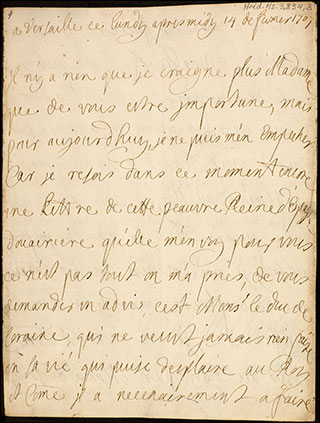 4
Hs. 3.834,8
a Versaille ce lundy apresmidy 14 de fevrier 1707
Il ny a rien que je craigne plus Madame
que de vous estre jmportune, mais
pour aujourdhuy, je ne puis men Empecher
Car je resois dans ce moment encore
une Lettre de cette peauvre Reine
douairiere quelle menvoy pour vous
ce nest pas tout on ma pries, de vous
demander un advis, cest Monsr le duc de
loraine, qui ne veust jamais rien faire
en sa vie qui puise desplaire au Roy
et Come jl a necenairement a faire